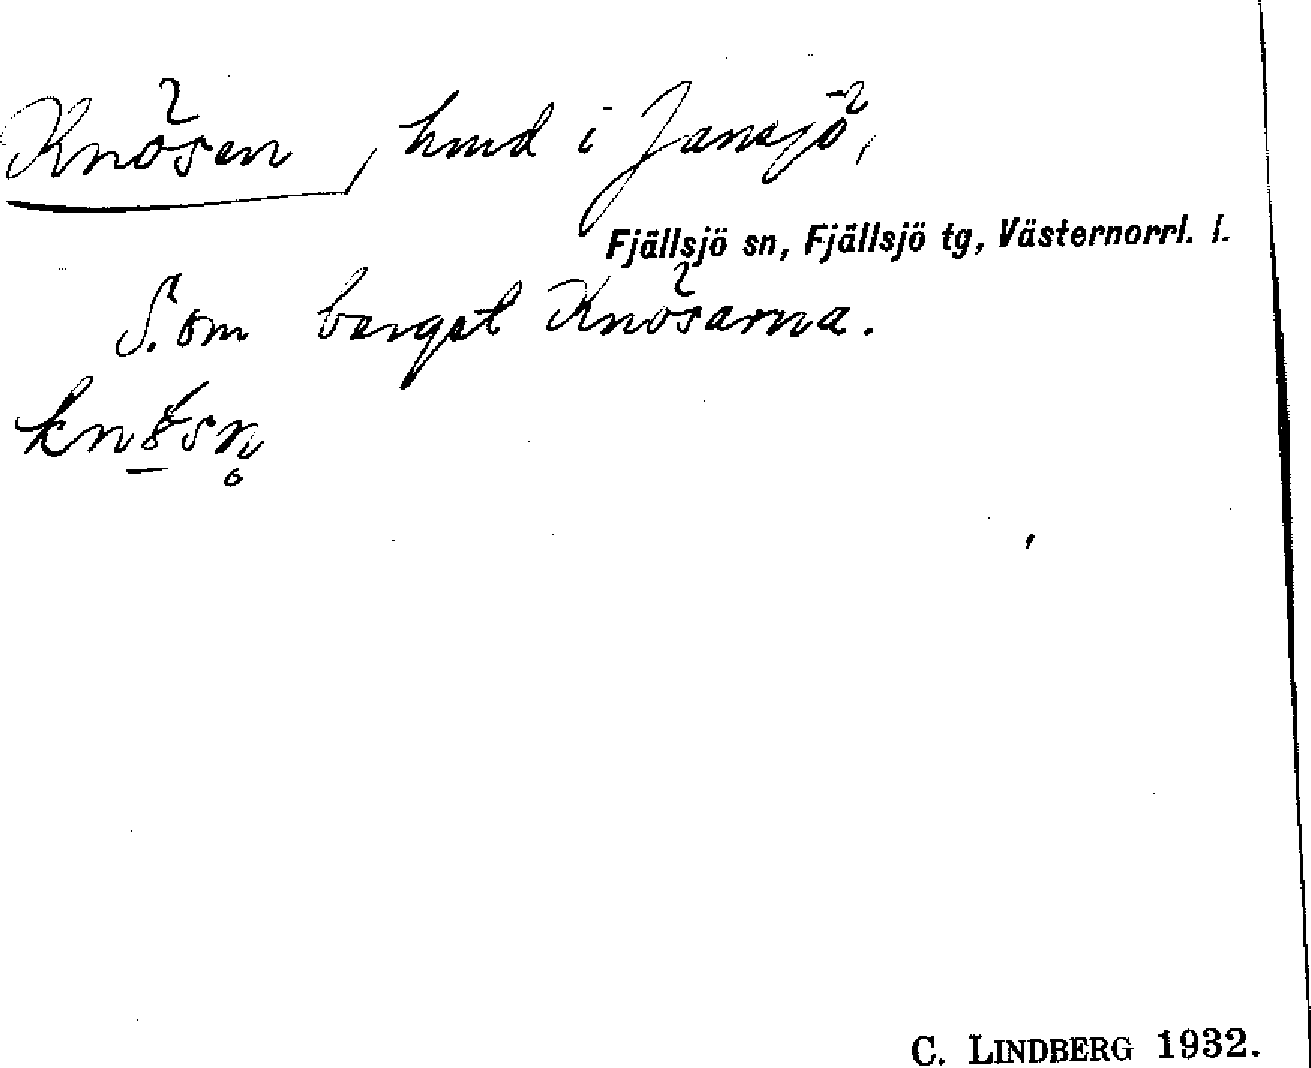 Knösen, hmd i Jansjö,
Fjällsjö sn, Fjällsjö tg, Västernorrl. l.
S. om berget Knösarna.
C. LINDBERG 1932.